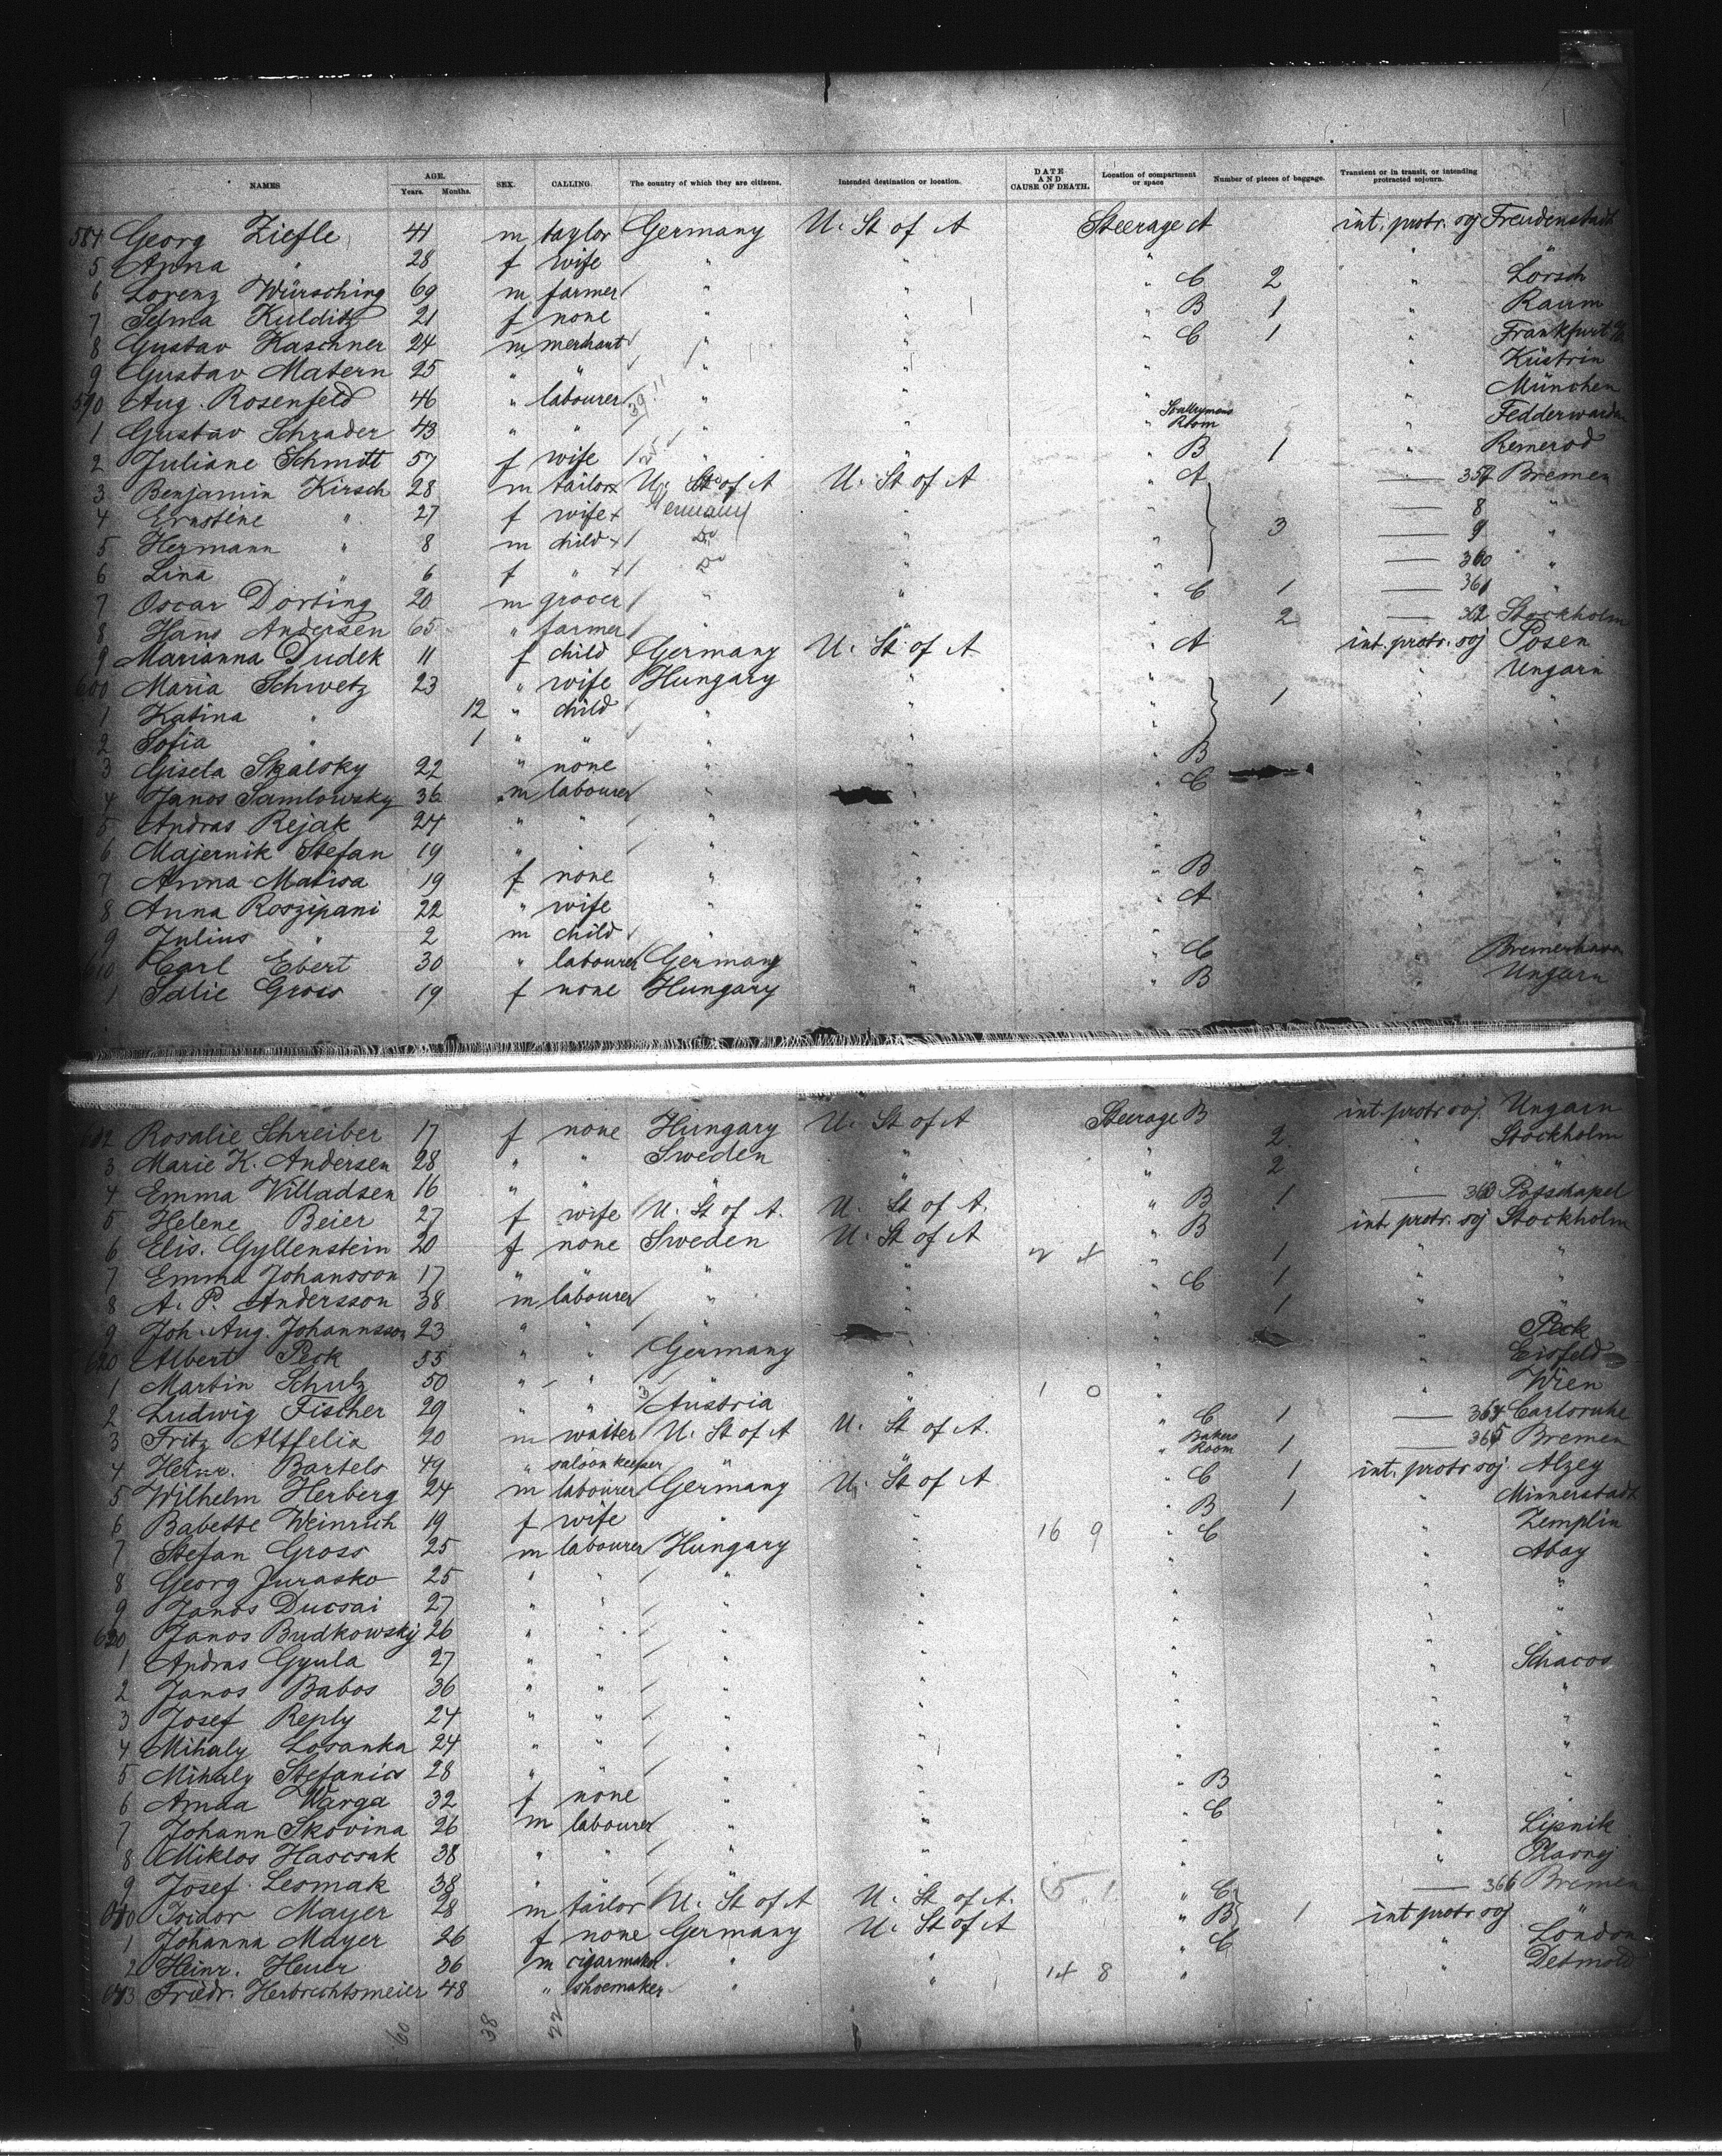 NAMES AGE. Years. Months. SEX. CALLING. The country of which they are citizens. Intended destination or location. DATE AND CAUSE OF DEATH. Location of compartment or space Number of pieces of baggage. Transient or in transit, or intending protracted sojourn.
584 Georg Ziefle 41 m taylor Germany U. St of A Steerage A int. protr. soj Freudenstadt
5 Anna " 28 f wife " " " "
6 Lorenz Würsching 69 m farmer " " " C 2 " Lorsch
7 Selma Kulditz 21 f none " " " B 1 " Raum
8 Gustav Kaschner 24 m merhant " " " C 1 " Frankfurt
9 Gustav Matern 25 " " " " " " Küstrin
590 Aug. Rosenfeld 46 " labourer " " " " München
1 Gustav Schrader 43 " " " " " Room " Fedderwarden
2 Juliane Schmitt 57 f wife " " " B 1 " Remerod
3 Benjamin Kirsch 28 m tailor U. St of A U. St of A " A 357 Bremen
4 Ernstine " 27 f wife Germany " " 8 "
5 Hermann " 8 m child Do " " 3 9 "
6 Lina " 6 f " Do " " 360 "
7 Oscar Dörting 20 m grocer " " " C 1 361 "
8 Hans Andersen 65 " farmer " " " 2 362 Stockholm
9 Marianna Dudek 11 f child Germany U. St of A " A int. protr. soj Posen
600 Maria Schwetz 23 " wife Hungary " " " Ungarn
1 Katina " 12 " child " " " 1 " "
2 Sofia " 1 " " " " " " "
3 Gisela Skalsky 22 " none " " " B " "
4 Janos Samlowsky 36 m labourer " " " C " "
5 Andras Rejak 24 " " " " " " "
6 Majernik Stefan 19 " " " " " " "
7 Anna Matisa 19 f none " " " B " "
8 Anna Roszipani 22 " wife " " " A " "
9 Julius " 2 m child " " " " "
610 Carl Ebert 30 " labourer Germany " " C " Bremerhaven
1 Sallie Gross 19 f none Hungary " " B " Ungarn
612 Rosalie Schreiber 17 f none Hungary U. St of A Steerage B int. protr soj. Ungarn
3 Marie K. Andersen 28 " " Sweden " " 2 " Stockholm
4 Emma Villadsen 16 " " " " " 2 " "
5 Helene Beier 27 f wife U. St of A. U. St of A. " B 1 363 Potschapel
6 Elis. Gyllenstein 20 f none Sweden U. St of A " B int protr. soj Stockholm
7 Emma Johansson 17 " " " " " 1 " "
8 A. P. Andersson 38 m labourer " " " C 1 " "
9 Joh. Aug. Johannsson 23 " " " " " 1 " "
620 Albert Peck 55 " " Germany " " " Peck
1 Martin Schulz 50 " " " " " " Eisfeld
2 Ludwig Fischer 29 " " Austria " 1 0 " " Wien
3 Fritz Altfelix 20 m waiter U. St of A U. St of A. " C 1 364 Carlsruhe
4 Heinr. Bartels 49 " saloon keeper " " " Bakers Room 1 365 Bremen
5 Wilhelm Herberg 24 m labourer Germany U. St of A " C 1 int. protr soj. Alzey
6 Babette Weinrich 19 f wife " " " B 1 " Minnerstadt
7 Stefan Gross 25 m labourer Hungary " 16 9 " C " Zemplin
8 Georg Jurasko 25 " " " " " " Abay
9 Janos Ducsai 27 " " " " " " "
630 Janos Budkowskij 26 " " " " " " "
1 Andras Gyula 27 " " " " " " "
2 Janos Babos 36 " " " " " " Scharos
3 Josef Reply 24 " " " " " " "
4 Mihaly Losanka 24 " " " " " " "
5 Mihaly Stefanics 28 " " " " " " "
6 Anna Warga 32 f none " " " B " "
7 Johann Skovina 26 m labourer " " " C " "
8 Miklos Hascsak 38 " " " " " " Lipnik
9 Josef Lesmak 38 " " " " " "
640 Isidor Mayer 28 m tailor U. St of A U. St of A. 5 1 " C 366 Bremen
1 Johanna Mayer 26 f none Germany U. St of A " B 1 int protr. soj "
2 Heinr. Heuer 36 m cigarmaker " " " C " London
643 Friedr. Herbrechtsmeier 48 " shoemaker " " 14 8 " " Detmold
60 38 22